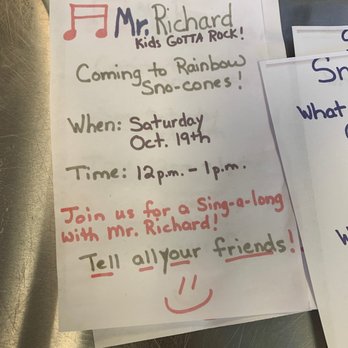 Mr. Richard
Kids GOTTA ROCK!
Coming to Rainbow
Sno-cones!
When: Saturday
Oct. 19th
Time: 12p.m. - 1p.m.
Join us for a Sing-a-long
with Mr. Richard!
Tell all your friends!
What